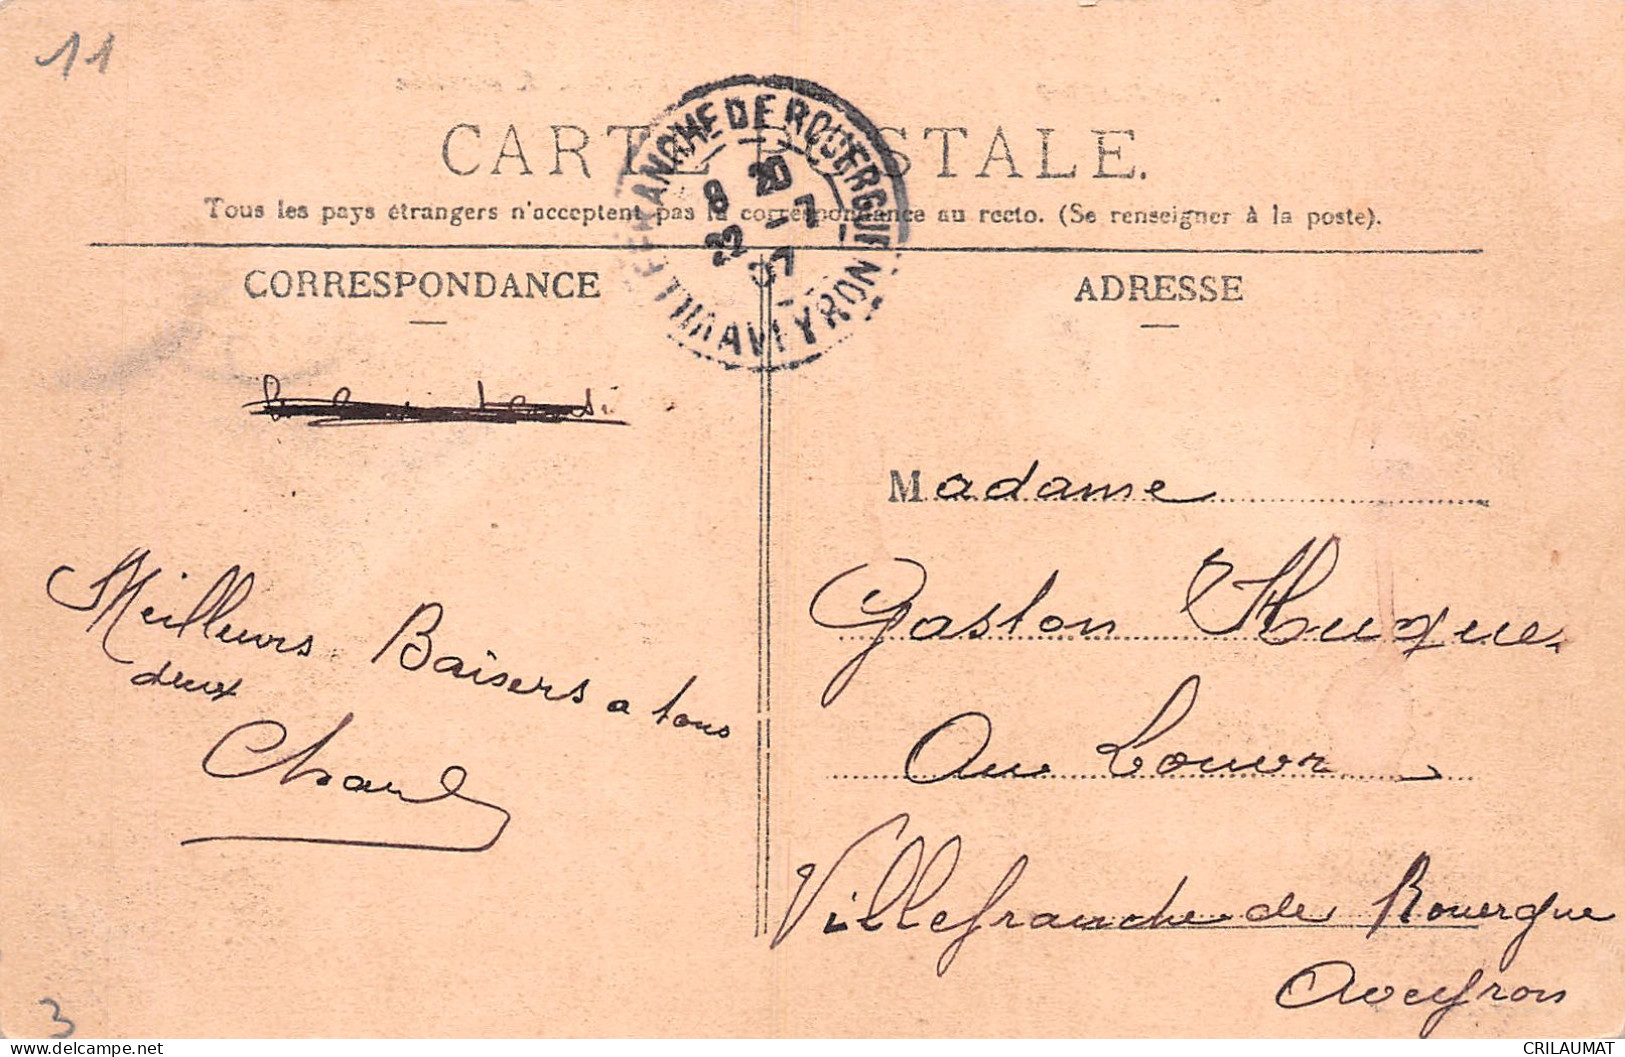 11
CARTE POSTALE.
Tous les pays étrangers n'acceptent pas la correspondance au recto. (Se renseigner à la poste).
ANCHE DE ROUERGUE
8 20
-7
32 07
AVEYRON
CORRESPONDANCE
ADRESSE
Madame
Gaston Huque
Au Louvre
Villefranche de Rouergue
Aveyron
Meilleurs Baisers a tous
deux
3
CRILAUMAT